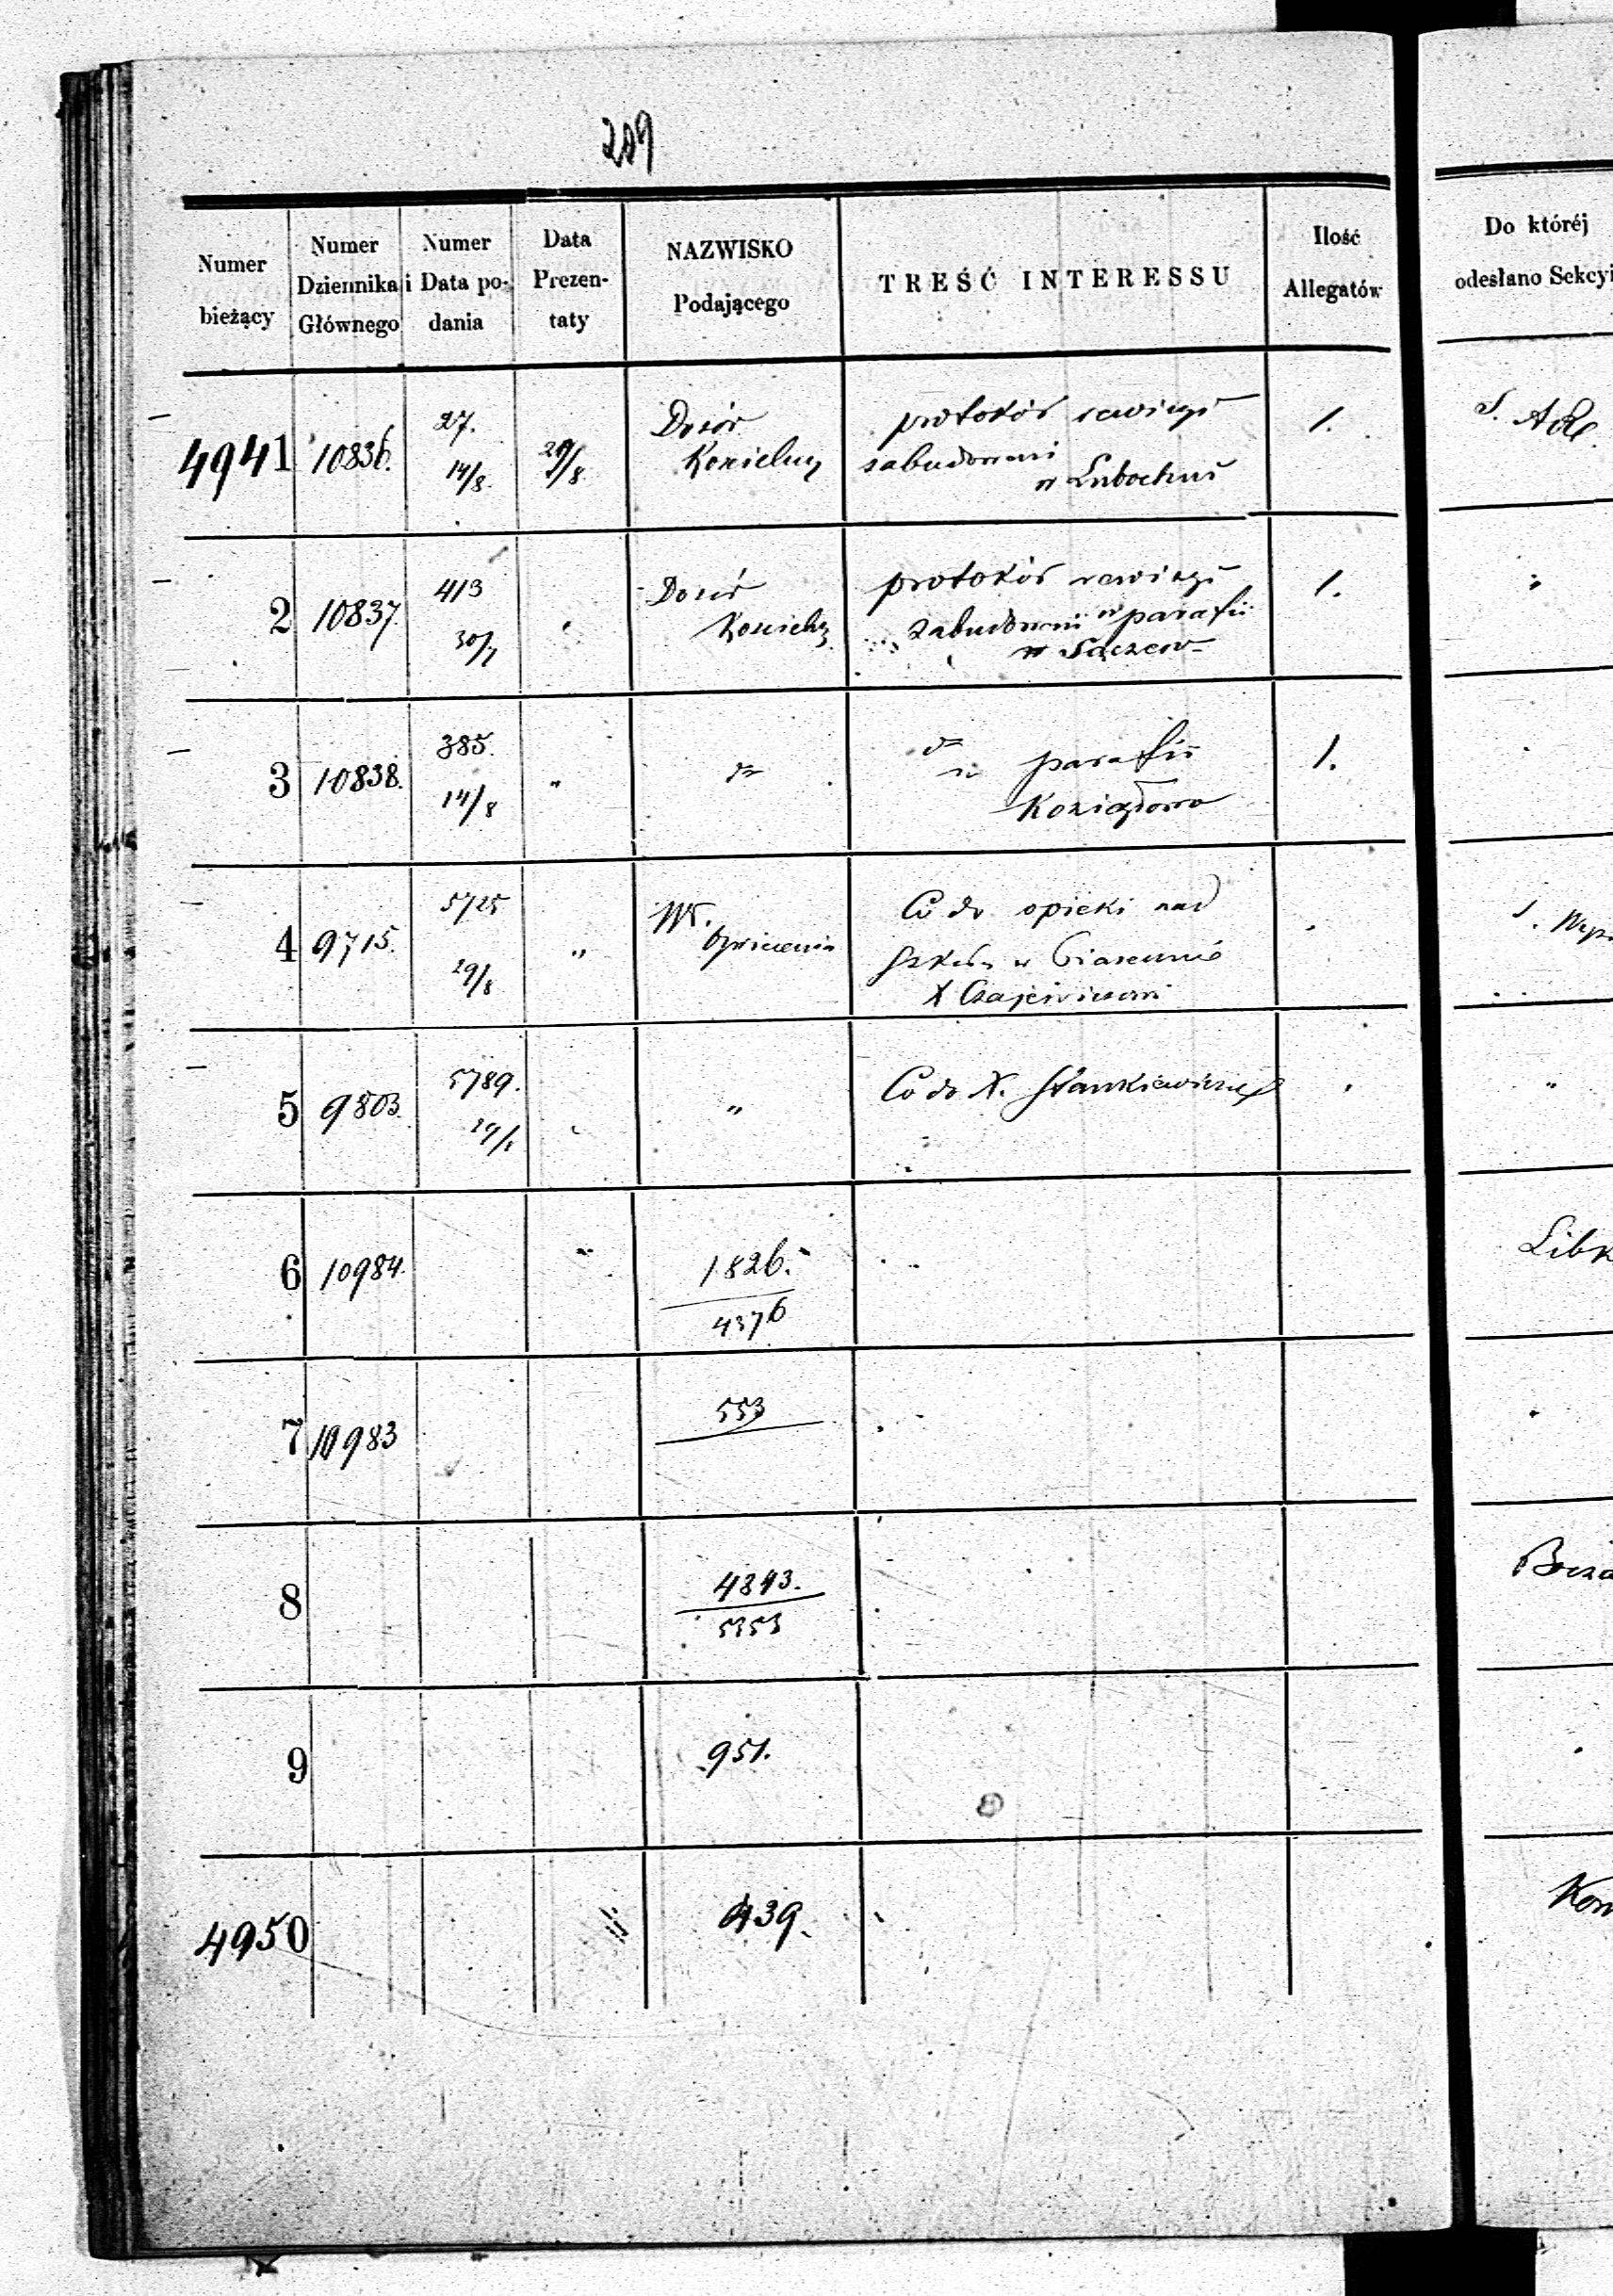 209
Numer bieżący
Numer Dziennika Głównego
Numer i Data podania
Data Prezentaty
NAZWISKO Podającego
TREŚĆ INTERESSU
Ilość Allegatów
Do któréj odesłano Sekcyi
4941 10836. 27. 14/8. 29/8 Dozór protokół rewizyi 1. S. Adl.
Kościelny zabudowań
w Lubochni
2 10837. 413 30/7 Dozór protokół rewizyi 1. "
Kościelny zabudowań w parafii
w
3 10838. 385. 14/8 " dto dto w parafii 1.
Koziegłowy
4 9715. 5725 29/8 " Wł. Co do opieki nad
Oświecenia Szkołą w
X
5 9803. 5789. 29/8 " " Co do X. Stankiewicza "
6 10984. " 1826. Libk
4376
7 10983 553
8 4843.
5353
9 951.
4950 439. Kom